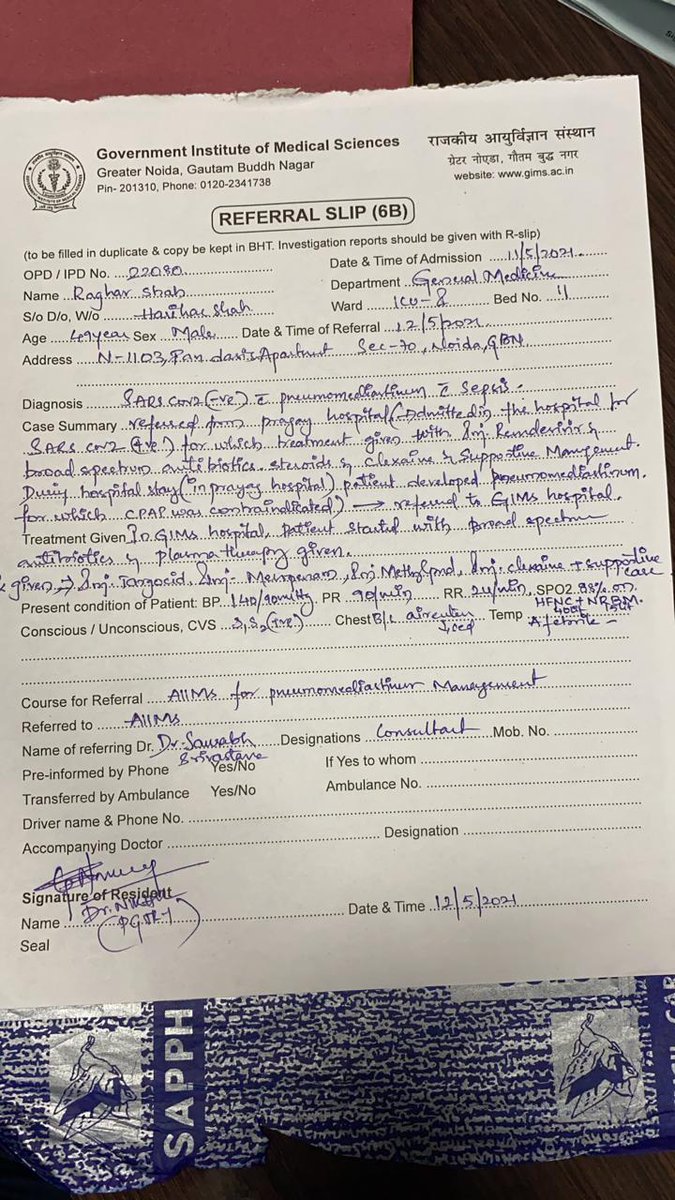 Government Institute of Medical Sciences
Greater Noida, Gautam Buddh Nagar
Pin- 201310, Phone: 0120-2341738
राजकीय आयुर्विज्ञान संस्थान
ग्रेटर नोएडा, गौतम बुद्ध नगर
website: www.gims.ac.in
REFERRAL SLIP (6B)
(to be filled in duplicate & copy be kept in BHT. Investigation reports should be given with R-slip)
OPD / IPD No. 22080 Date & Time of Admission 11/5/2021
Name Raghav Shah Department General Medicine
S/o D/o, W/o Harihar Shah Ward ICU-8 Bed No. 4
Age 49year Sex Male Date & Time of Referral 12/5/2021
Address N-1103, Pan Apartment Sec-70, Noida, GBN
Diagnosis SARS COV2 pneumomediastinum c Sepsis.
Case Summary referred from prayag hospital (Admitted in the hospital for
SARS COV2 (+ve) for which treatment given with Inj. Remdesivir &
broad spectrum antibiotics, steroids & clexaine & Supportive Management.
During hospital stay (in prayag hospital) patient developed pneumomediastinum.
for which CPAP was contraindicated) → referred to GIMs hospital.
Treatment Given In GIMS hospital, patient started with broad spectrum
antibiotics & plasma therapy given.
given → Inj. Targocid, Inj- Meropenam, Inj Methylpred, Inj. clexaine + supportive care
Present condition of Patient: BP 140/90mmHg PR 90/min RR 24/min SPO2 88% on
HFNC + NRBM.
Conscious / Unconscious, CVS S1S2(+ve) Chest B/L air entry Temp Afebrile
Course for Referral AIIMs for pneumomediastinum Management
Referred to AIIMs
Name of referring Dr. Dr. Saurabh Srivastava Designations Consultant Mob. No.
Pre-informed by Phone Yes/No If Yes to whom
Transferred by Ambulance Yes/No Ambulance No.
Driver name & Phone No.
Accompanying Doctor Designation
Signature of Resident
Name Dr. Date & Time 12/5/2021
Seal
SAPPH